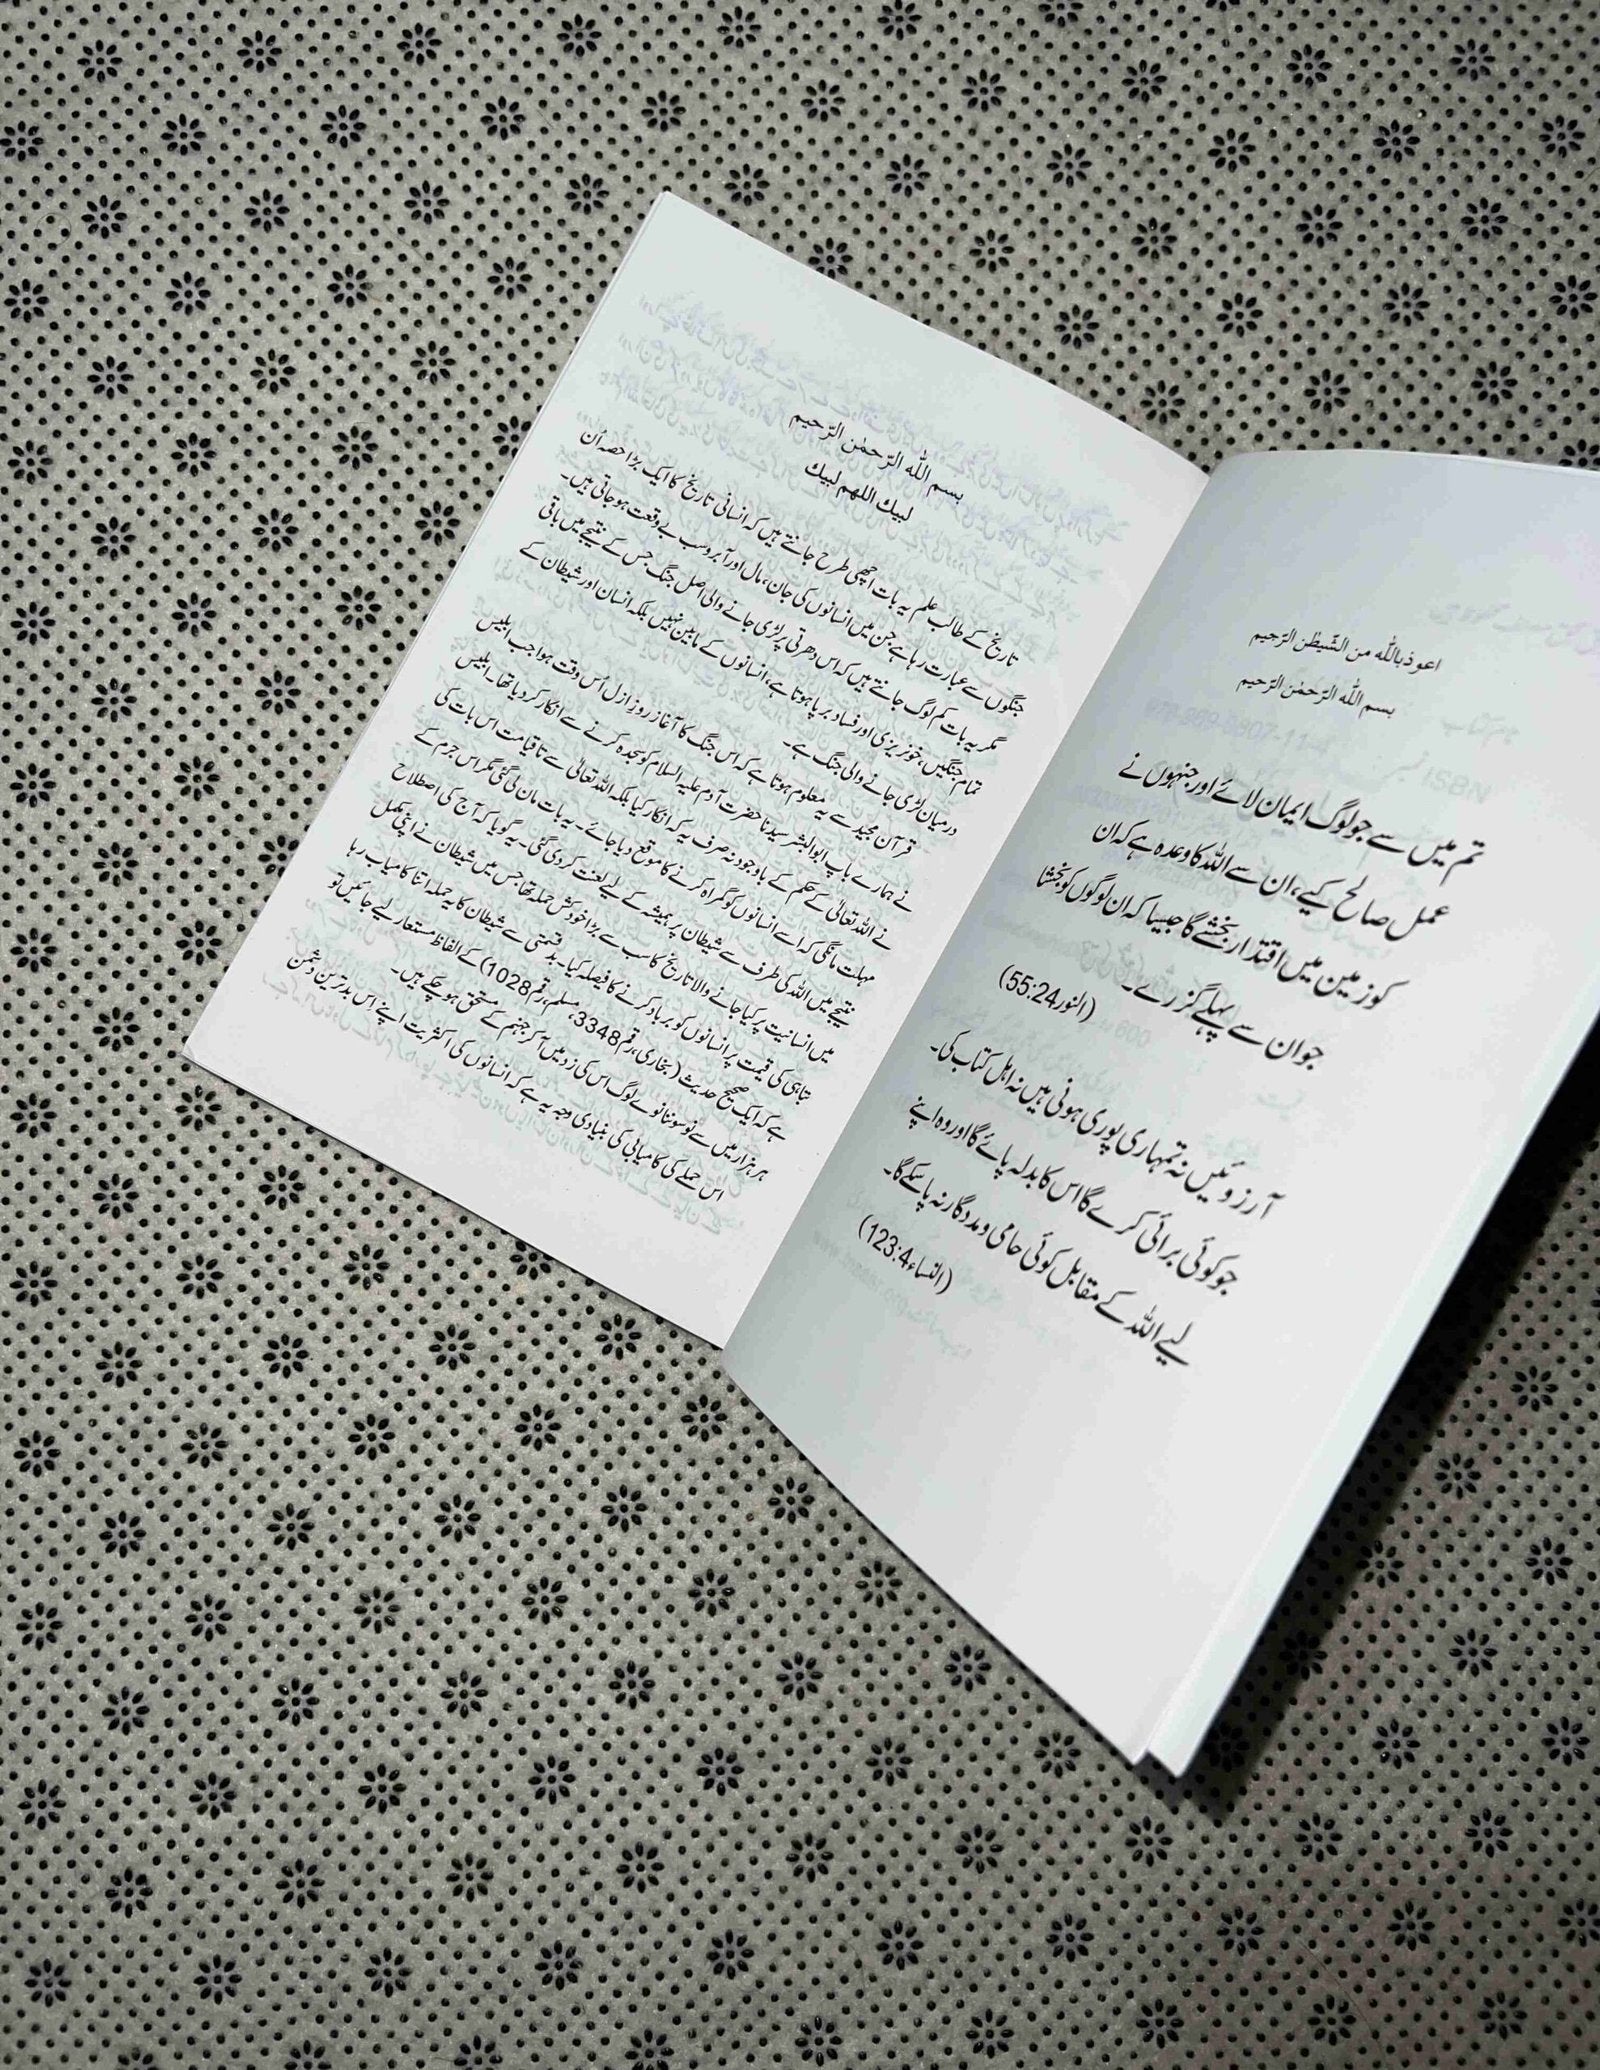 اعوذ بالله من الشّيطٰن الرّحيم
بسم الله الرّحمٰن الرّحيم
تم میں سے جو لوگ ایمان لائے اور جنہوں نے
عمل صالح کیے، ان سے اللہ کا وعدہ ہے کہ ان
کو زمین میں اقتدار بخشے گا جیسا کہ ان لوگوں کو بخشا
جو ان سے پہلے گزرے۔
(النور55:24)
آرزوئیں نہ تمہاری پوری ہونی ہیں نہ اہل کتاب کی۔
جو کوئی برائی کرے گا اس کا بدلہ پائے گا اور وہ اپنے
لیے اللہ کے مقابل کوئی حامی و مددگار نہ پا سکے گا۔
(النساء123:4)
بسم الله الرّحمٰن الرّحيم
لبيك اللهم لبيك
تاریخ کے طالب علم یہ بات اچھی طرح جانتے ہیں کہ انسانی تاریخ کا ایک بڑا حصہ اُن
جنگوں سے عبارت رہا ہے جن میں انسانوں کی جان، مال اور آبرو سب بے وقعت ہو جاتی ہیں۔
مگر یہ بات کم لوگ جانتے ہیں کہ اس دھرتی پر لڑی جانے والی اصل جنگ جس کے نتیجے میں باقی
تمام جنگیں، خونریزی اور فساد برپا ہوتا ہے، انسانوں کے مابین نہیں بلکہ انسان اور شیطان کے
درمیان لڑی جانے والی جنگ ہے۔
قرآن مجید سے یہ معلوم ہوتا ہے کہ اس جنگ کا آغاز روزِ ازل اُس وقت ہوا جب ابلیس
نے ہمارے باپ ابوالبشر سیدنا حضرت آدم علیہ السلام کو سجدہ کرنے سے انکار کر دیا تھا۔ ابلیس
نے اللہ تعالیٰ کے حکم کے باوجود نہ صرف یہ کہ انکار کیا بلکہ اللہ تعالیٰ سے تا قیامت اس بات کی
مہلت مانگی کہ اسے انسانوں کو گمراہ کرنے کا موقع دیا جائے۔ یہ بات مان لی گئی مگر اس جرم کے
نتیجے میں اللہ کی طرف سے شیطان پر ہمیشہ کے لیے لعنت کر دی گئی۔ یہ گویا کہ آج کی اصطلاح
میں انسانیت پر کیا جانے والا تاریخ کا سب سے بڑا خودکش حملہ تھا جس میں شیطان نے اپنی مکمل
تباہی کی قیمت پر انسانوں کو برباد کرنے کا فیصلہ کیا۔ بدقسمتی سے شیطان کا یہ حملہ اتنا کامیاب رہا
ہے کہ ایک صحیح حدیث (بخاری، رقم 3348، مسلم، رقم 1028) کے الفاظ مستعار لیے جائیں تو
ہر ہزار میں سے نو سو ننانوے لوگ اس کی زد میں آ کر جہنم کے مستحق ہو چکے ہیں۔
اس حملے کی کامیابی کی بنیادی وجہ یہ ہے کہ انسانوں کی اکثریت اپنے اس بدترین دشمن